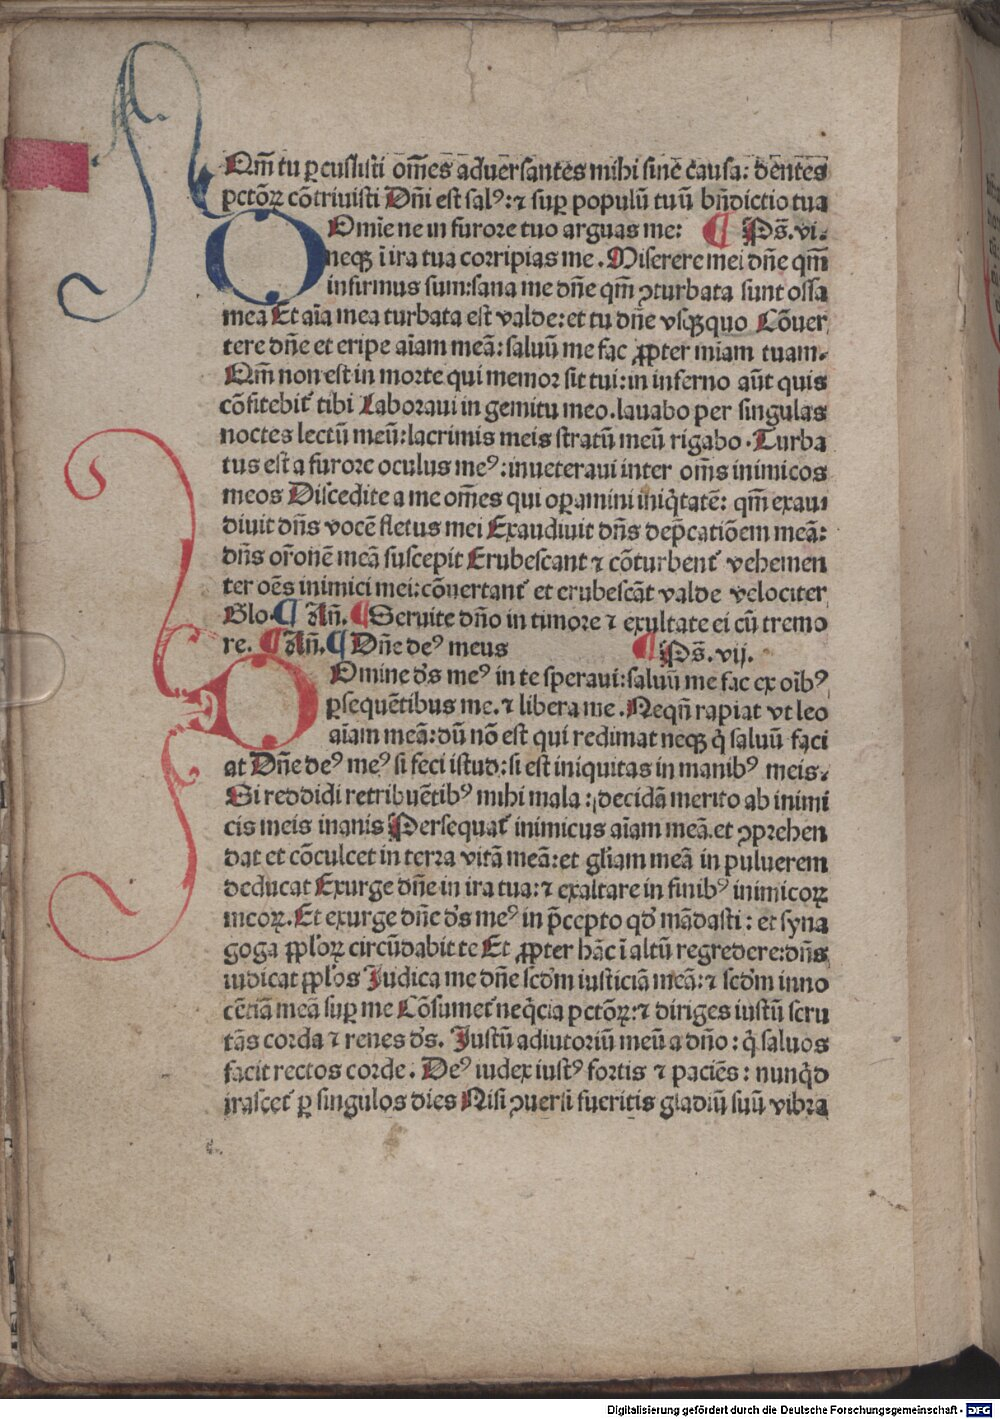 Qm̄ tu ꝑcussisti om̄es aduersantes mihi sine causa: dentes
pctōꝝ cōtriuisti Dn̄i est salꝰ: ⁊ suꝑ populū tuū bn̄dictio tua
Domīe ne in furore tuo arguas me: ¶ Ps̄. vi.
neqꝫ ī ira tua corripias me. Miserere mei dn̄e qm̄
infirmus sum: sana me dn̄e qm̄ ꝯturbata sunt ossa
mea Et aīa mea turbata est valde: et tu dn̄e vsqꝫquo Cōuer
tere dn̄e et eripe aīam meā: saluū me fac ꝓpter mīam tuam.
Qm̄ non est in morte qui memor sit tui: in inferno aūt quis
cōfitebit᷑ tibi Laboraui in gemitu meo. lauabo per singulas
noctes lectū meū: lacrimis meis stratū meū rigabo. Turba
tus est a furore oculus meꝰ: inueteraui inter om̄s inimicos
meos Discedite a me om̄es qui oꝑamini iniq̇tatē: qm̄ exau
diuit dn̄s vocē fletus mei Exaudiuit dn̄s dep̄catiōem meā:
dn̄s or̄onē meā suscepit Erubescant ⁊ cōturbent᷑ vehemen
ter oēs inimici mei: cōuertant᷑ et erubescāt valde velociter
Glo. ¶ Añ. ¶ Seruite dn̄o in timore ⁊ exultate ei cū tremo
re. ¶ Añ. ¶ Dn̄e deꝰ meus ¶ Ps̄. vij.
Domine dꝰs meꝰ in te speraui: saluū me fac ex oībꝰ
ꝑsequētibus me. ⁊ libera me. Neqn̄ rapiat vt leo
aīam meā: dū nō est qui redimat neqꝫ q̇ saluū faci
at Dn̄e deꝰ meꝰ si feci istud: si est iniquitas in manibꝰ meis.
Si reddidi retribuētibꝰ mihi mala: decidā merito ab inimi
cis meis inanis Persequat᷑ inimicus aīam meā. et ꝯprehen
dat et cōculcet in terra vitā meā: et gl̄iam meā in puluerem
deducat Exurge dn̄e in ira tua: ⁊ exaltare in finibꝰ inimicoꝝ
meoꝝ. Et exurge dn̄e dꝰs meꝰ in p̄cepto qd̓ mādasti: et syna
goga ꝓpl̓oꝝ circūdabit te Et ꝓpter hāc ī altū regredere: dn̄s
iudicat ꝓpl̓os Judica me dn̄e scd̓m iusticiā meā: ⁊ scd̓m inno
cētiā meā suꝑ me Cōsumet᷑ neq̇cia pctōꝝ: ⁊ diriges iustū scru
tās corda ⁊ renes dꝰs. Justū adiutoriū meū a dn̄o: q̇ saluos
facit rectos corde. Deꝰ iudex iustꝰ fortis ⁊ paciēs: nunq̇d
irascet᷑ ꝑ singulos dies Nisi ꝯuersi fueritis gladiū suū vibra
Digitalisierung gefördert durch die Deutsche Forschungsgemeinschaft - DFG